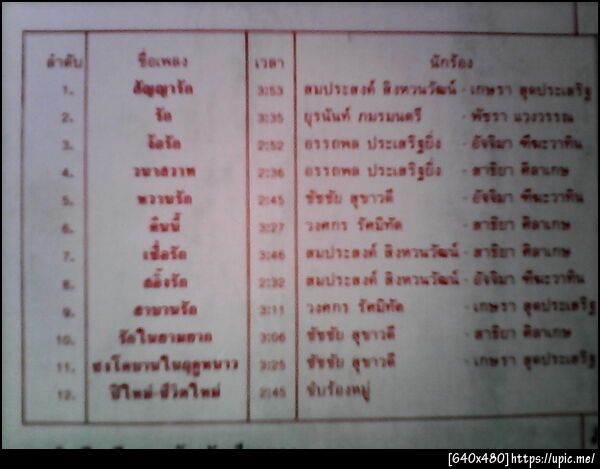 ลำดับ ชื่อเพลง เวลา นักร้อง
1. สัญญารัก 3:53 สมประสงค์ สิงหวนวัฒน์ - เกษรา สุดประเสริฐ
2. รัก 3:35 ยุรนันท์ ภมรมนตรี - พัชรา แวงวรรณ
3. 2:52 อรรถพล ประเสริฐยิ่ง - อัจจิมา
4. วนาสวาท 2:36 อรรถพล ประเสริฐยิ่ง - สาธิยา ศิลาเกษ
5. หวานรัก 2:45 ชัชชัย สุขาวดี - อัจจิมา
6. คืนนี้ 3:27 วงศกร รัศมิทัต - สาธิยา ศิลาเกษ
7. เชื่อรัก 3:46 สมประสงค์ สิงหวนวัฒน์ - สาธิยา ศิลาเกษ
8. 2:32 สมประสงค์ สิงหวนวัฒน์ - อัจจิมา
9. สาบานรัก 3:11 วงศกร รัศมิทัต - เกษรา สุดประเสริฐ
10. รักในยามยาก 3:06 ชัชชัย สุขาวดี - สาธิยา ศิลาเกษ
11. 3:25 ชัชชัย สุขาวดี - เกษรา สุดประเสริฐ
12. ปีใหม่-ชีวิตใหม่ 2:45 ขับร้องหมู่
[640x480]https://upic.me/